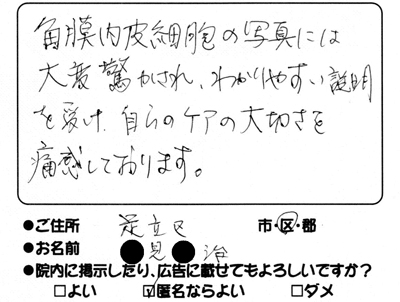 角膜内皮細胞の写真には
大変驚かされ、わかりやすい説明
を受け、自らのケアの大切さを
痛感しております。
●ご住所 足立区 市・区・郡
●お名前 ●見●治
●院内に掲示したり、広告に載せてもよろしいですか？
□よい ☑匿名ならよい □ダメ